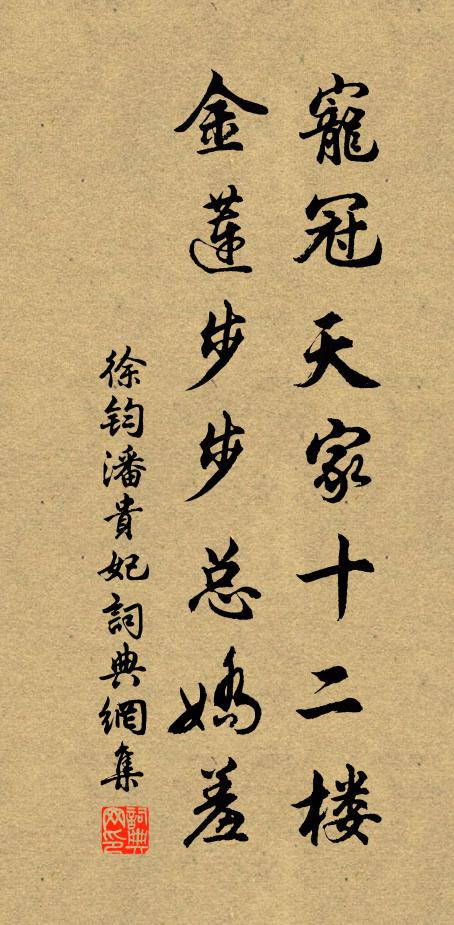 寵冠天家十二楼
金蓮步步总嬌羞
徐鈞潘貴妃詞典網集
詞典网印